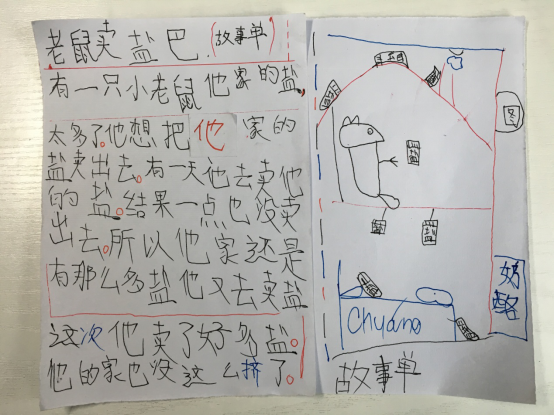 老鼠卖盐巴(故事单)
有一只小老鼠他家的盐
太多了。他想把他家的
盐卖出去。有一天他去卖他
的盐。结果一点也没卖
出去。所以他家还是
有那么多盐他又去卖盐
这次他卖了好多盐。
他的家也没这么挤了。
盐
盐
盐
图
盐
盐
盐
奶酪
盐
Chuang
盐
故事单